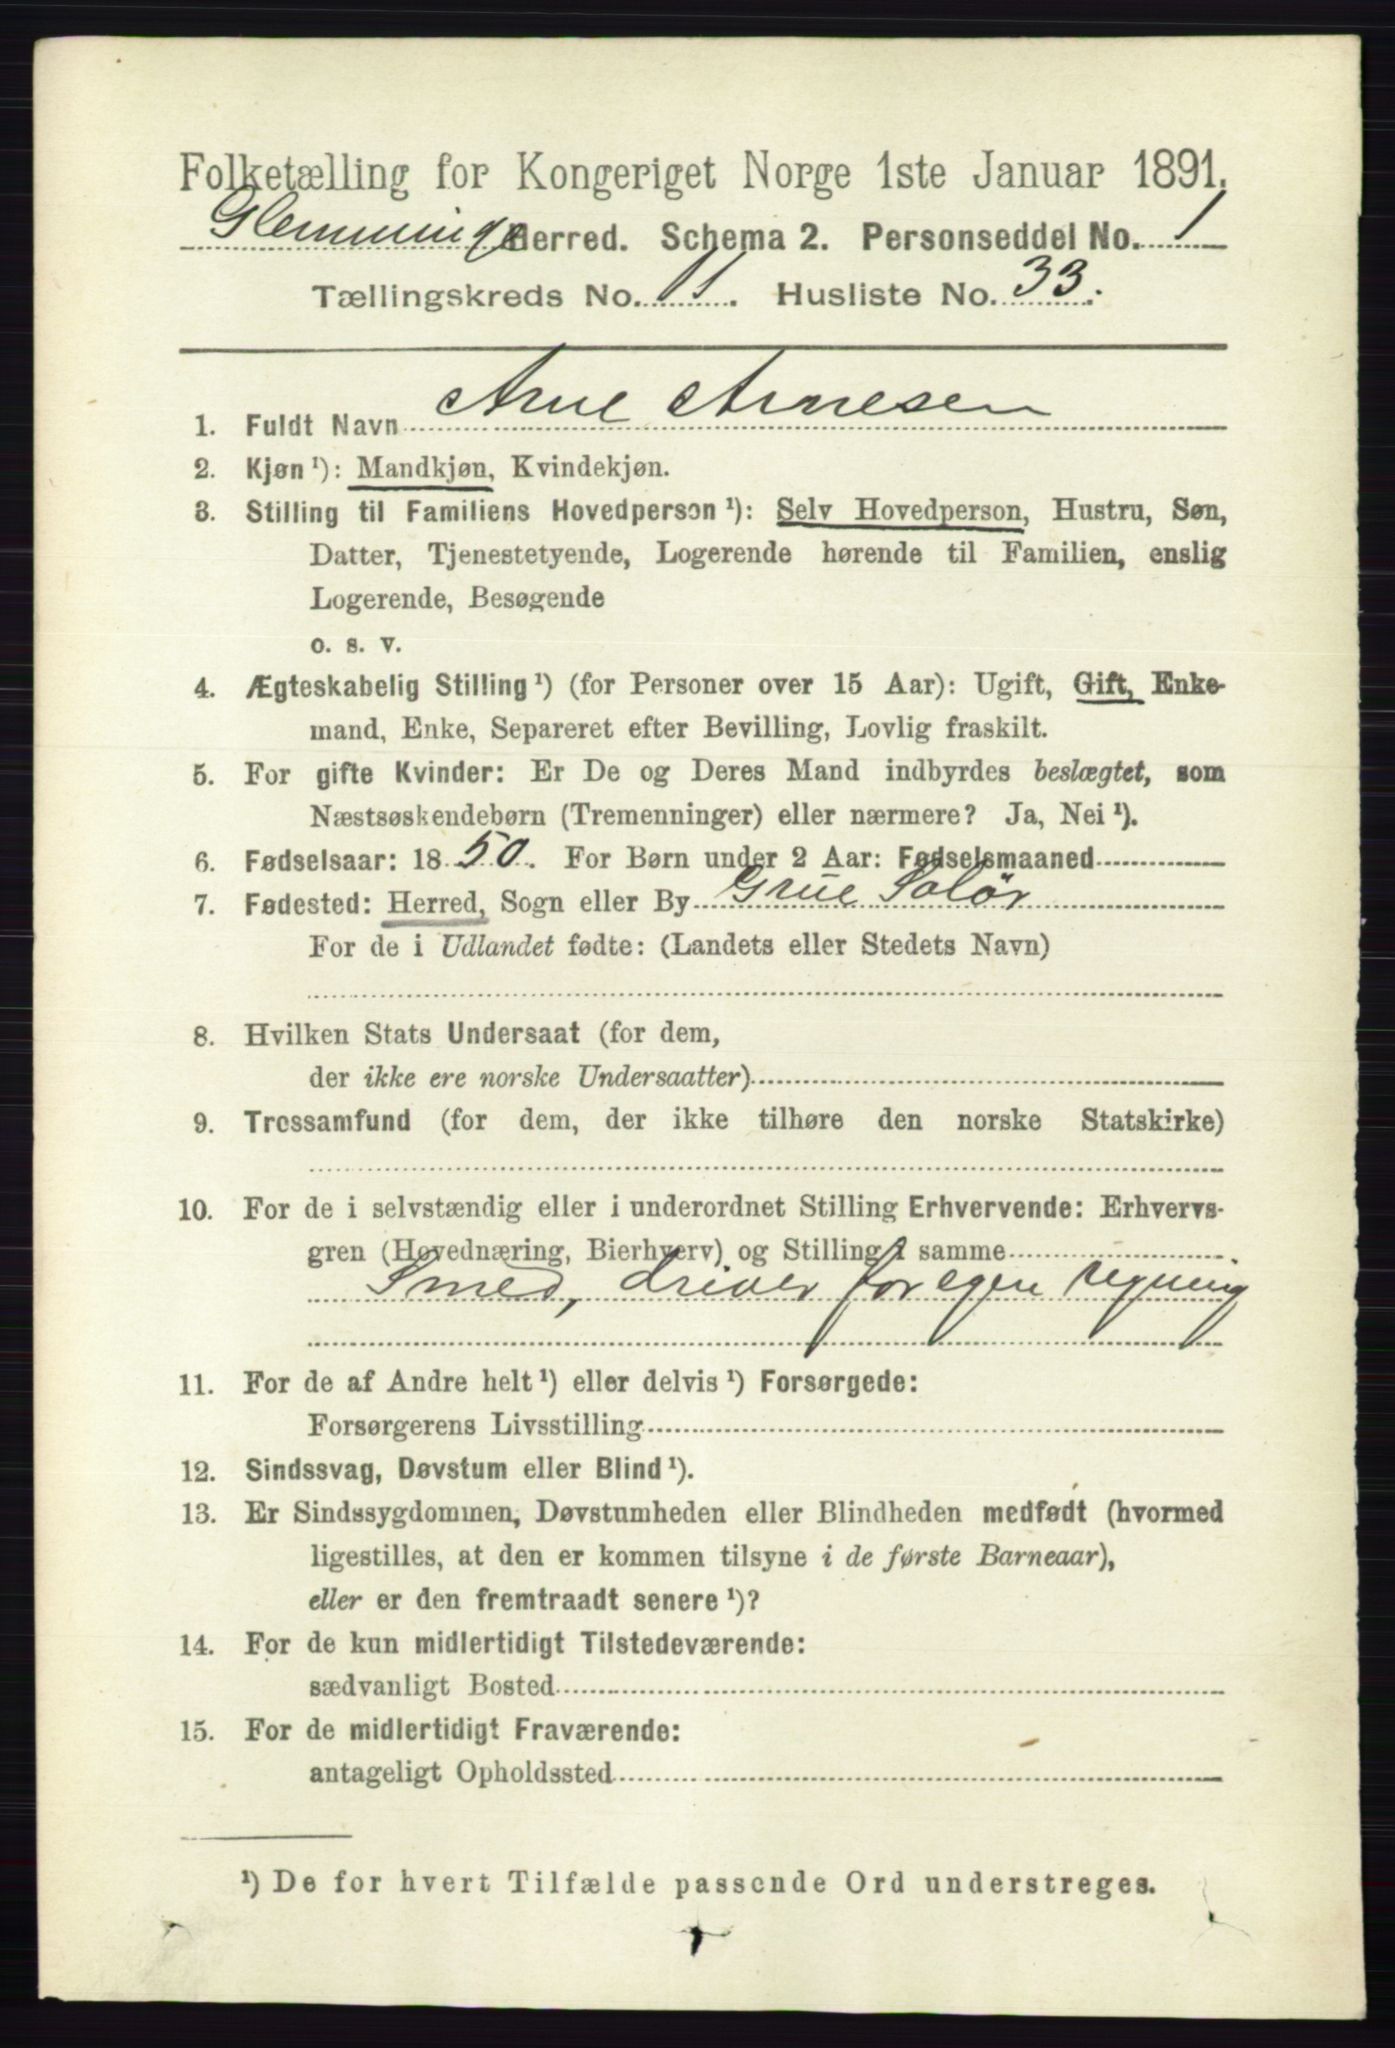 Folketælling for Kongeriget Norge 1ste Januar 1891.
Glemminge Herred. Schema 2. Personseddel No. 1
Tællingskreds No. 11. Husliste No. 33.
1. Fuldt Navn Arne Arnesen
2. Kjøn ¹): Mandkjøn, Kvindekjøn.
3. Stilling til Familiens Hovedperson ¹): Selv Hovedperson, Hustru, Søn,
Datter, Tjenestetyende, Logerende hørende til Familien, enslig
Logerende, Besøgende
o. s. v.
4. Ægteskabelig Stilling ¹) (for Personer over 15 Aar): Ugift, Gift, Enke-
mand, Enke, Separeret efter Bevilling, Lovlig fraskilt.
5. For gifte Kvinder: Er De og Deres Mand indbyrdes beslægtet, som
Næstsøskendebørn (Tremenninger) eller nærmere? Ja, Nei ¹).
6. Fødselsaar: 1850. For Børn under 2 Aar: Fødselsmaaned
7. Fødested: Herred, Sogn eller By Grue Solör
For de i Udlandet fødte: (Landets eller Stedets Navn)
8. Hvilken Stats Undersaat (for dem,
der ikke ere norske Undersaatter)
9. Trossamfund (for dem, der ikke tilhøre den norske Statskirke)
10. For de i selvstændig eller i underordnet Stilling Erhvervende: Erhvervs-
gren (Hovednæring, Bierhverv) og Stilling i samme
Smed, driver for egen regning
11. For de af Andre helt ¹) eller delvis ¹) Forsørgede:
Forsørgerens Livsstilling
12. Sindssvag, Døvstum eller Blind ¹).
13. Er Sindssygdommen, Døvstumheden eller Blindheden medfødt (hvormed
ligestilles, at den er kommen tilsyne i de første Barneaar),
eller er den fremtraadt senere ¹)?
14. For de kun midlertidigt Tilstedeværende:
sædvanligt Bosted
15. For de midlertidigt Fraværende:
antageligt Opholdssted
¹) De for hvert Tilfælde passende Ord understreges.